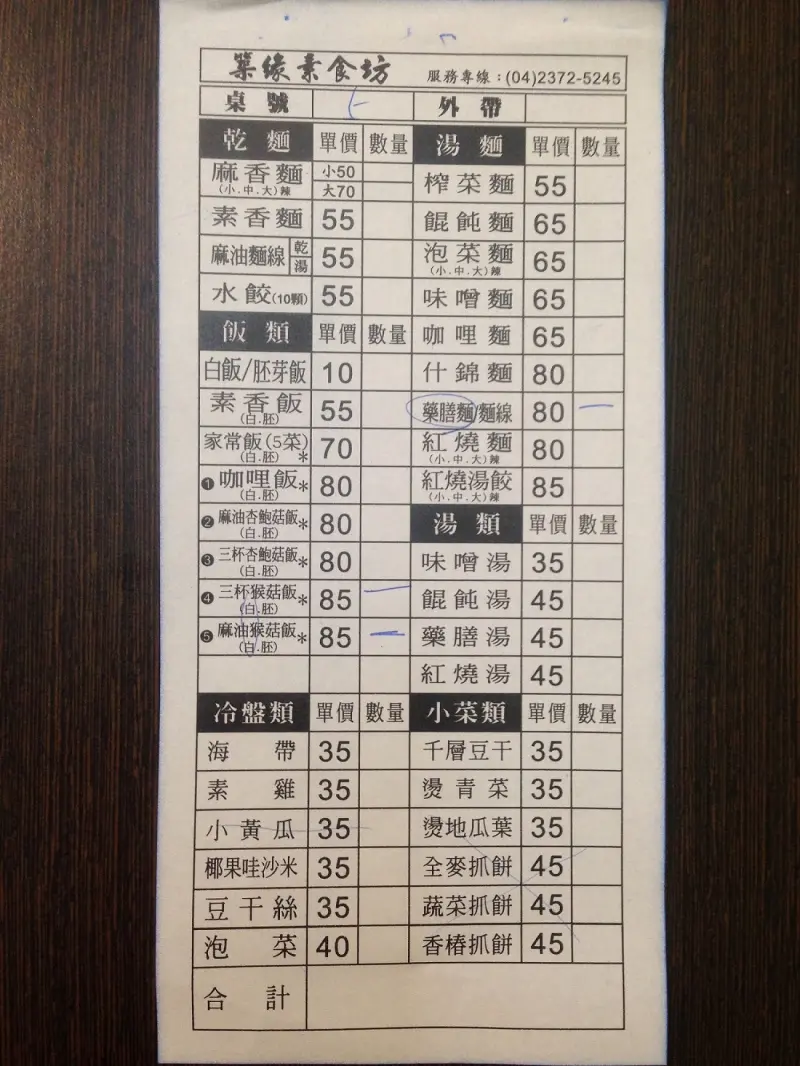 築緣素食坊 服務專線：(04)2372-5245
桌號 外帶
乾麵 單價 數量
麻香麵 小50
(小.中.大)辣 大70
素香麵 55
麻油麵線 乾 湯 55
水餃(10顆) 55
飯類 單價 數量
白飯/胚芽飯 10
素香飯 55
(白.胚)
家常飯(5菜) 70
(白.胚) *
❶咖哩飯* 80
(白.胚)
❷麻油杏鮑菇飯* 80
(白.胚)
❸三杯杏鮑菇飯* 80
(白.胚)
❹三杯猴菇飯* 85 一
(白.胚)
❺麻油猴菇飯* 85 一
(白.胚)
湯麵 單價 數量
榨菜麵 55
餛飩麵 65
泡菜麵 65
(小.中.大)辣
味噌麵 65
咖哩麵 65
什錦麵 80
藥膳麵/麵線 80 一
紅燒麵 80
(小.中.大)辣
紅燒湯餃 85
(小.中.大)辣
湯類 單價 數量
味噌湯 35
餛飩湯 45
藥膳湯 45
紅燒湯 45
冷盤類 單價 數量
海帶 35
素雞 35
小黃瓜 35
椰果哇沙米 35
豆干絲 35
泡菜 40
小菜類 單價 數量
千層豆干 35
燙青菜 35
燙地瓜葉 35
全麥抓餅 45
蔬菜抓餅 45
香椿抓餅 45
合計